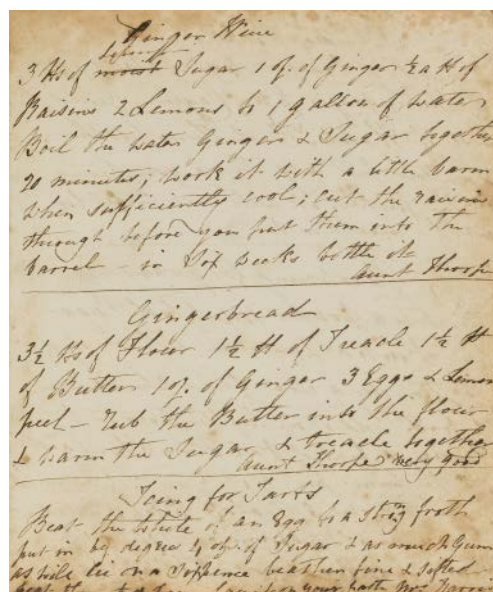 Ginger Wine
3 lbs of moist Sugar 1 oz. of Ginger ½ a lb of
Raisins 2 Lemons to 1 gallon of water
Boil the water Ginger & Sugar together
20 minutes; work it with a little barm
when sufficiently cool; cut the raisins
through before you put them into the
barrel – in Six weeks bottle it
Aunt Thorpe
Gingerbread
3½ lbs of Flour 1½ lb of Treacle 1½ lb
of Butter 1 oz. of Ginger 3 Eggs & Lemon
peel – rub the Butter into the flour
& warm the Sugar & treacle together
Aunt Thorpe very good
Icing for Tarts
Beat the White of an Egg to a strong froth
put in by degrees 4 oz. of Sugar & as much Gum
as will lie on a Sixpence beat fine & sifted